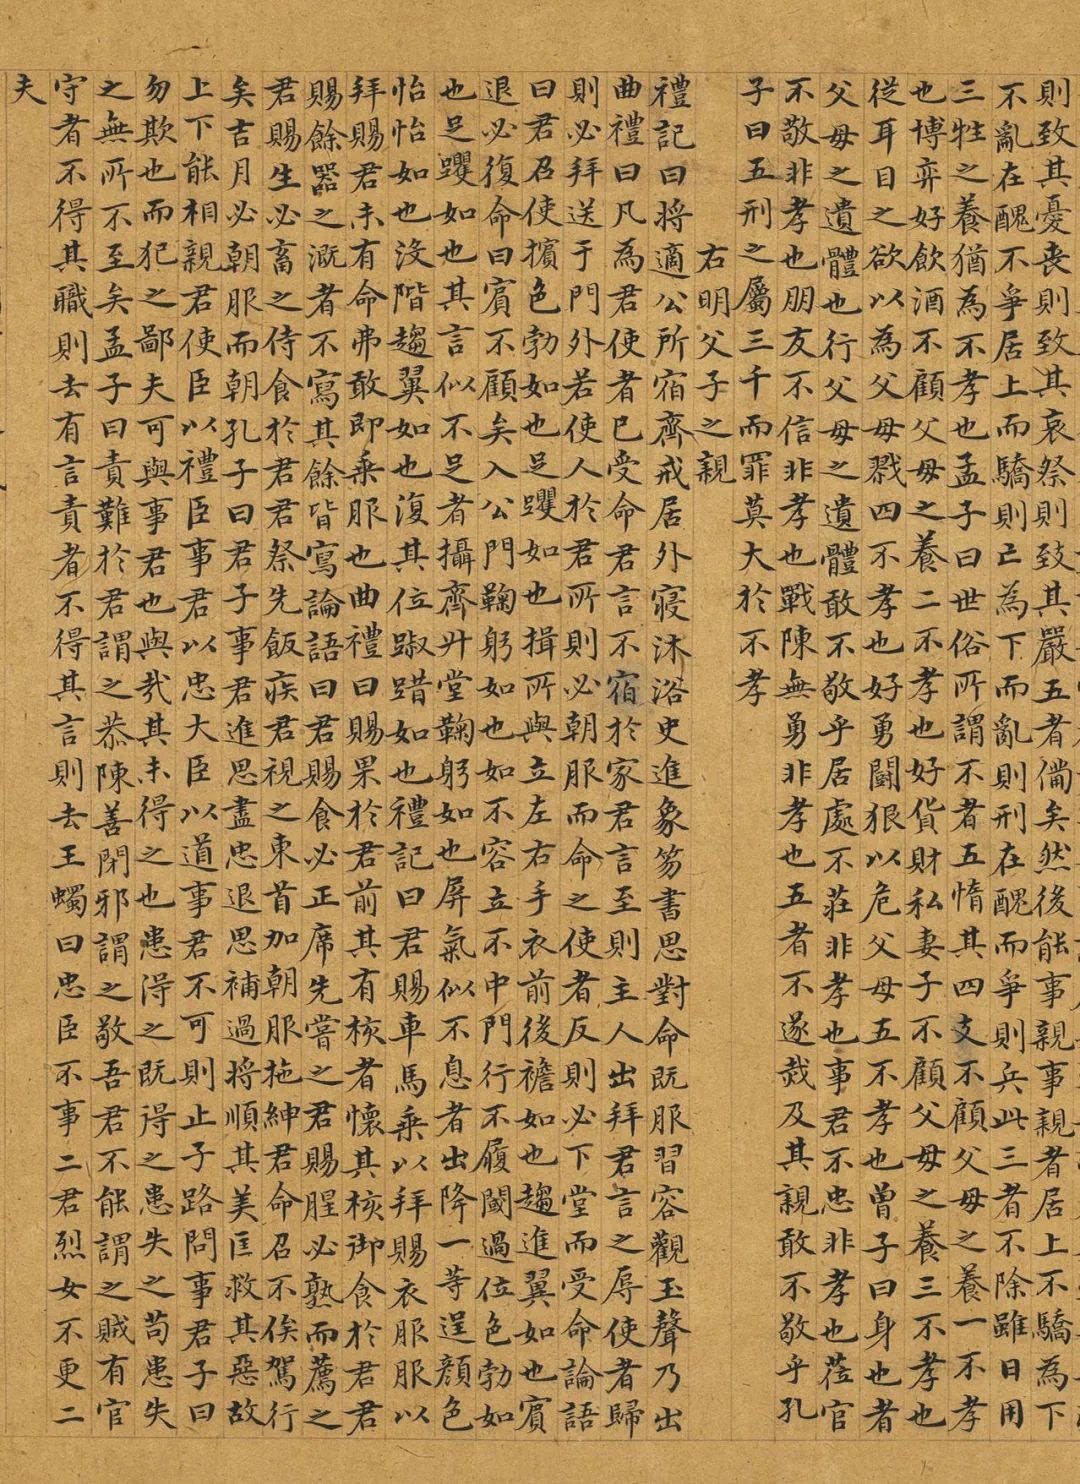 則致其憂喪則致其哀祭則致其嚴五者備矣然後能事親事親者居上不驕為下
不亂在醜不爭居上而驕則亡為下而亂則刑在醜而爭則兵此三者不除雖日用
三牲之養猶為不孝也孟子曰世俗所謂不者五惰其四支不顧父母之養一不孝
也博弈好飲酒不顧父母之養二不孝也好貨財私妻子不顧父母之養三不孝也
從耳目之欲以為父母戮四不孝也好勇鬪狠以危父母五不孝也曾子曰身也者
父母之遺體也行父母之遺體敢不敬乎居處不莊非孝也事君不忠非孝也蒞官
不敬非孝也朋友不信非孝也戰陳無勇非孝也五者不遂烖及其親敢不敬乎孔
子曰五刑之屬三千而罪莫大於不孝
右明父子之親
禮記曰將適公所宿齊戒居外寢沐浴史進象笏書思對命既服習容觀玉聲乃出
曲禮曰凡為君使者已受命君言不宿於家君言至則主人出拜君言之辱使者歸
則必拜送于門外若使人於君所則必朝服而命之使者反則必下堂而受命論語
曰君召使擯色勃如也足躩如也揖所與立左右手衣前後襜如也趨進翼如也賓
退必復命曰賓不顧矣入公門鞠躬如也如不容立不中門行不履閾過位色勃如
也足躩如也其言似不足者攝齊升堂鞠躬如也屏氣似不息者出降一等逞顏色
怡怡如也沒階趨翼如也復其位踧踖如也禮記曰君賜車馬乘以拜賜衣服服以
拜賜君未有命弗敢即乘服也曲禮曰賜果於君前其有核者懷其核御食於君君
賜餘器之溉者不寫其餘皆寫論語曰君賜食必正席先嘗之君賜腥必熟而薦之
君賜生必畜之侍食於君君祭先飯疾君視之東首加朝服拖紳君命召不俟駕行
矣吉月必朝服而朝孔子曰君子事君進思盡忠退思補過將順其美匡救其惡故
上下能相親君使臣以禮臣事君以忠大臣以道事君不可則止子路問事君子曰
勿欺也而犯之鄙夫可與事君也與哉其未得之也患得之既得之患失之苟患失
之無所不至矣孟子曰責難於君謂之恭陳善閉邪謂之敬吾君不能謂之賊有官
守者不得其職則去有言責者不得其言則去王蠋曰忠臣不事二君烈女不更二
夫